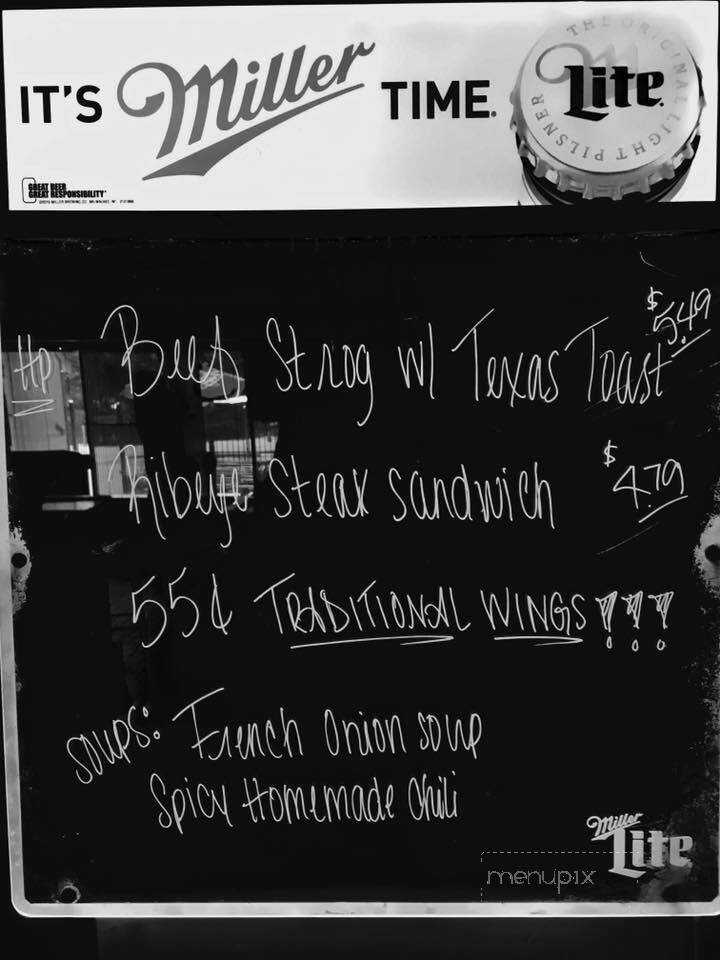 IT'S Miller TIME.
THE ORIGINAL LIGHT PILSNER
Lite
GREAT BEER
GREAT RESPONSIBILITY
$5.49
HD Beef Strog w/ Texas Toast
Ribeye Steak sandwich $4.79
55¢ TRADITIONAL WINGS !!!
SOUPS: French Onion soup
Spicy Homemade Chili
Miller
Lite
menupix